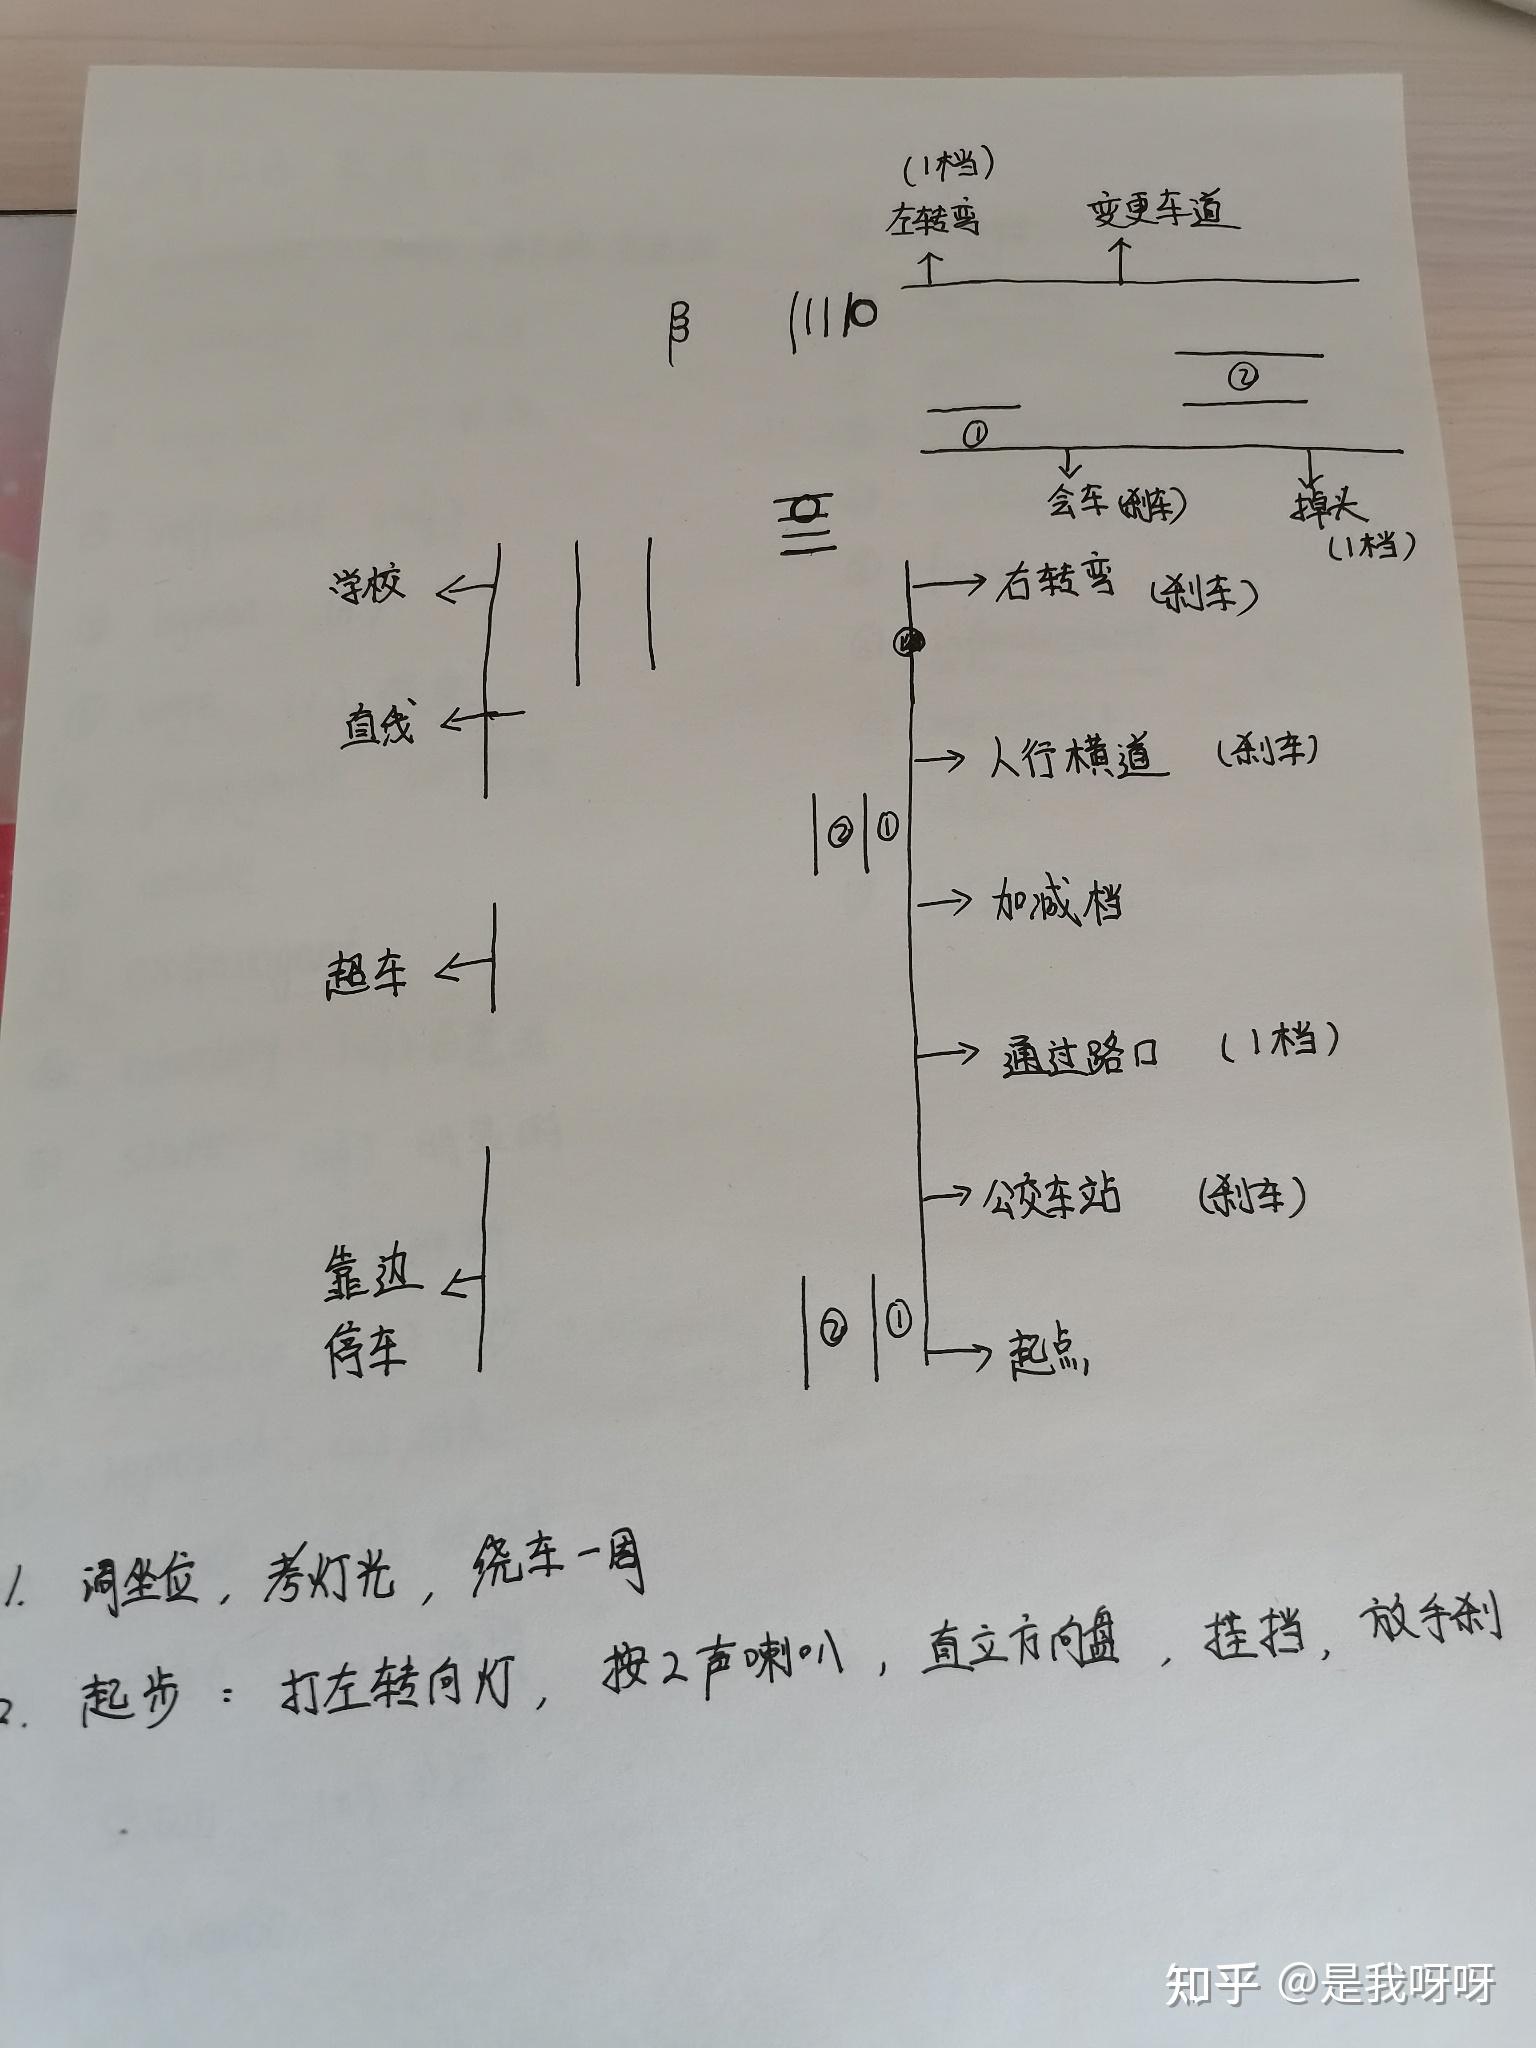 (1档)
左转弯 变更车道
②
①
会车(刹车) 掉头
(1档)
学校 右转弯 (刹车)
直线 人行横道 (刹车)
② ①
加减档
超车
通过路口 (1档)
公交车站 (刹车)
靠边
停车
② ①
起点
1. 调坐位，考灯光，绕车一周
2. 起步：打左转向灯，按2声喇叭，直立方向盘，挂挡，放手刹
知乎 @是我呀呀